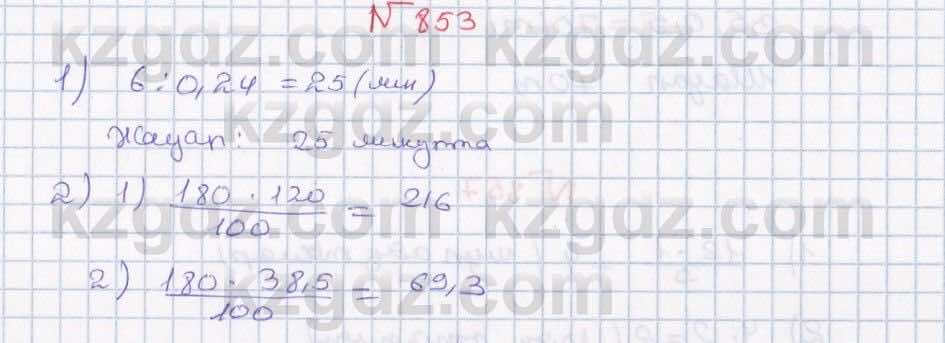 № 853
kzgdz.com kzgdz.com
1) 6 : 0,24 = 25 (мин)
Жауап: 25 минутта
kzgdz.com
2) 1) 180 · 120 / 100 = 216
kzgdz.com kzgdz.com
2) 180 · 38,5 / 100 = 69,3
kzgdz.com